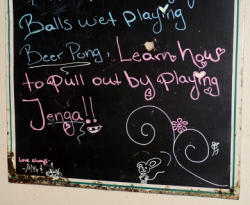 Balls wet playing
Beer Pong, Learn how
to pull out by playing
Jenga!!
Love always,